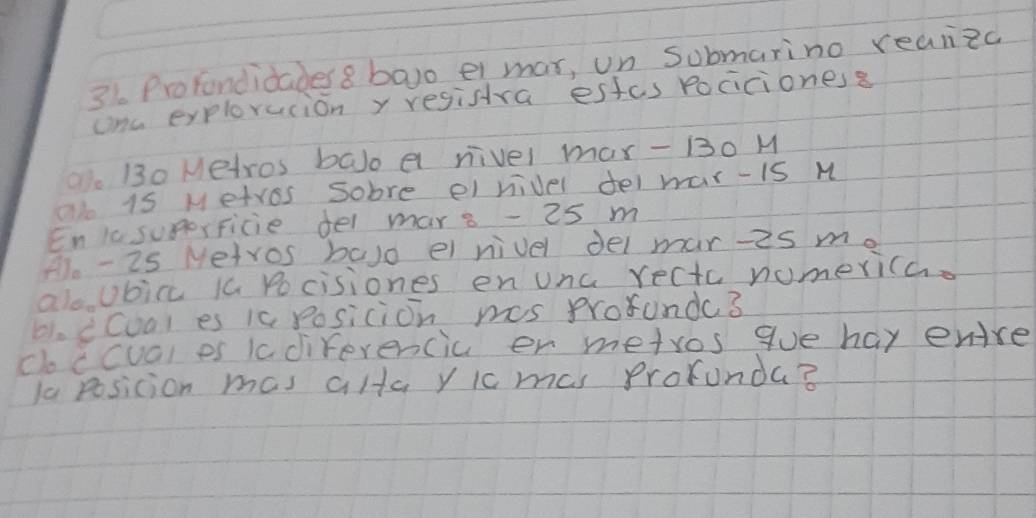 3). Profundidades: bajo el mar, un submarino realiza
una exploración y registra estas pociciones:
a). 130 Metros bajo a nivel mar - 130 M
a). 15 Metros sobre el nivel del mar - 15 M
En la superficie del mar: - 25 m
A). - 25 Metros bajo el nivel del mar - 25 m.
a). Ubica la pocisiones en una recta numerica.
b). ¿Cual es la posición mas profunda?
c). ¿Cual es la diferencia en metros que hay entre
la posicion mas alta y la mas profunda?